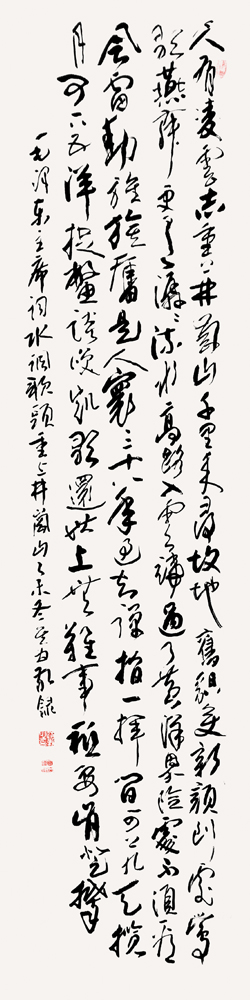 久有凌雲志重上井岡山千里來尋故地舊貌變新顔到處鶯
歌燕舞更有潺潺流水高路入雲端過了黃洋界險處不須看
風雷動旌旗奮是人寰三十八年過去彈指一揮間可上九天攬
月可下五洋捉鱉談笑凱歌還世上無難事祇要肯登攀
毛澤東主席詞水調歌頭重上井岡山乙未冬力敬錄